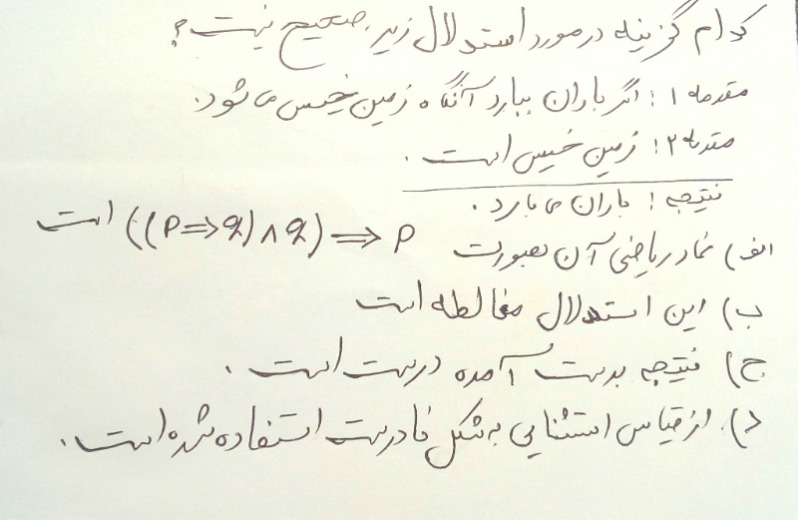 کدام گزینه در مورد استدلال زیر صحیح نیست؟
مقدمه ۱: اگر باران ببارد آنگاه زمین خیس می شود.
مقدمه ۲: زمین خیس است.
نتیجه: باران می بارد.
الف) نماد ریاضی آن بصورت ((P⇒q)∧q)⇒P است
ب) این استدلال مغالطه است
ج) نتیجه بدست آمده درست است.
د) از قیاس استثنایی به شکل نادرست استفاده شده است.